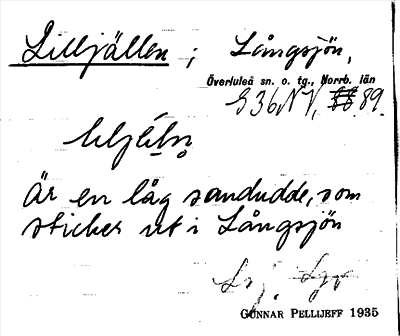 Lilljällen ; Långsjön,
Överluleå sn. o. tg., Norrb. län
G36NV, 89.
Är en låg sandudde, som
sticker ut i Långsjön
GUNNAR PELLIJEFF 1935